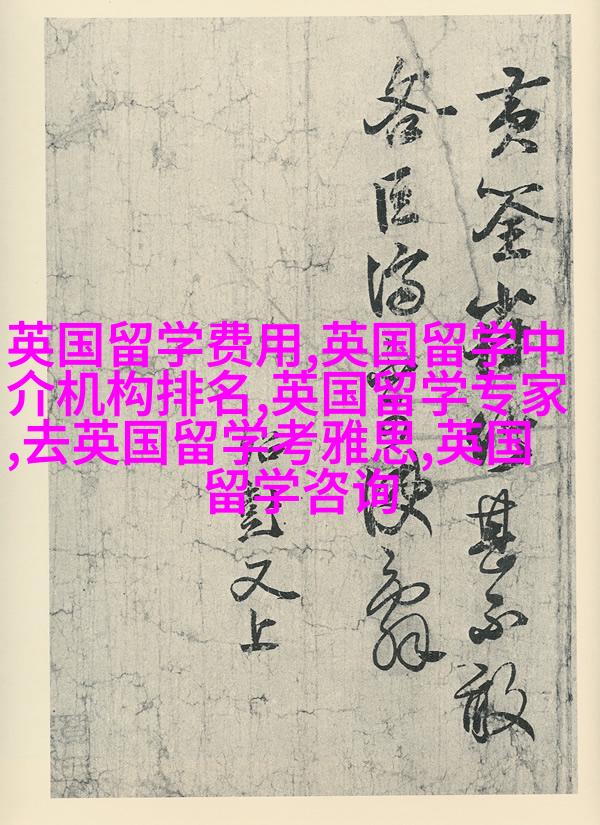 英国留学费用,英国留学中
介机构排名,英国留学专家
,去英国留学考雅思,英国
留学咨询
黄筌甚不敢
吝巨济
又上